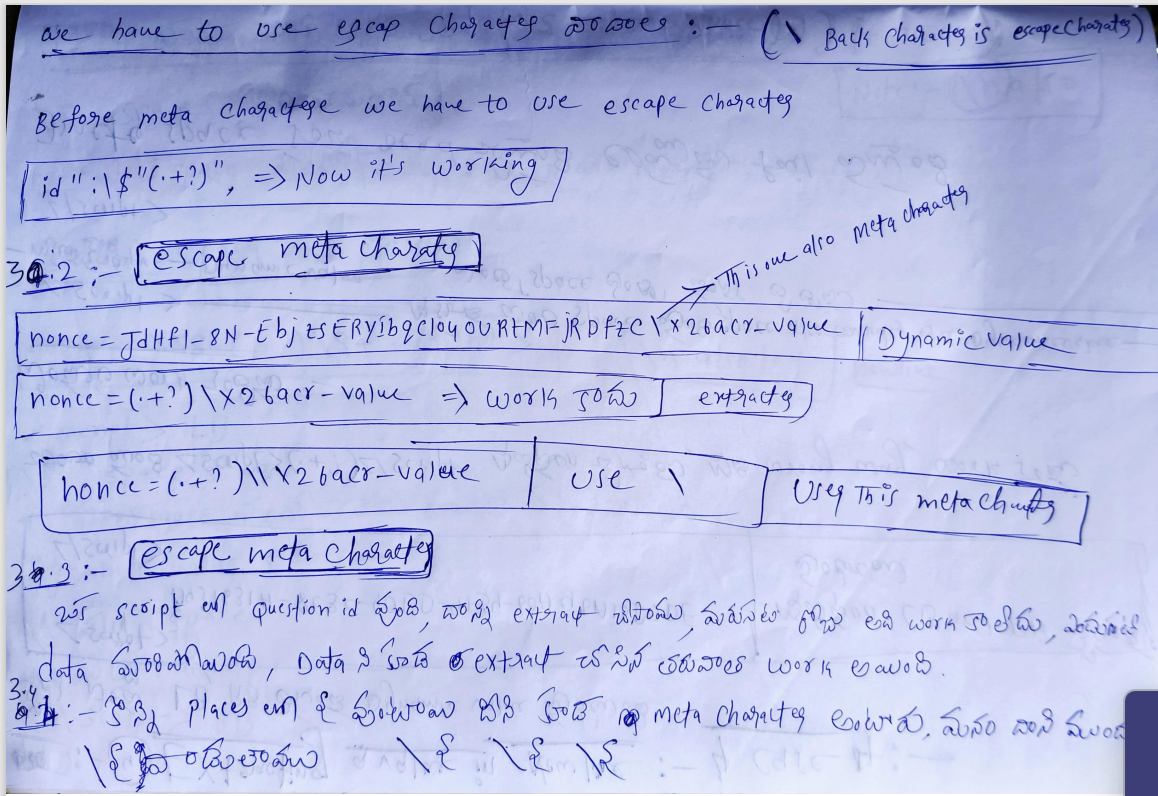 we have to use escap character వాడాలి :- ( \ Back character is escape Charater)
Before meta charactere we have to use escape character
id":\$"(.+?)", => Now it's working
This one also meta character
3.2 :- escape meta charater
nonce = JdHfl-8N-EbjzsERYibqCloy0URtMFjRDfzC\x26acr-value | Dynamic value
nonce = (.+?)\x26acr-value => work కాదు | extracter
nonce = (.+?)\\x26acr-value | use \ | User This meta character
3.3 :- escape meta character
ఒక script లో question id వుంది, దాన్ని extract చేసాము, మరుసటి రోజు అది work కాలేదు, ఎందుకంటే
data మారిపోయింది, Data ని కూడ extract చేసిన తరువాత work అయింది.
3.4 :- కొన్ని places లో { వుంటాయి దీని కూడ meta character అంటారు, మనం దాని ముందు
\{ వాడుతాము \{ \{ \{